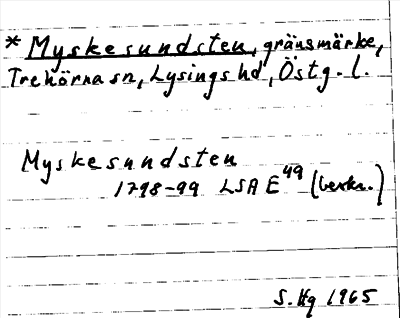 * Myskesundsten, gränsmärke,
Trehörna sn, Lysings hd, Östg. l.
Myskesundsten
1798-99 LSA E49 (verkn.)
S. Hg 1965